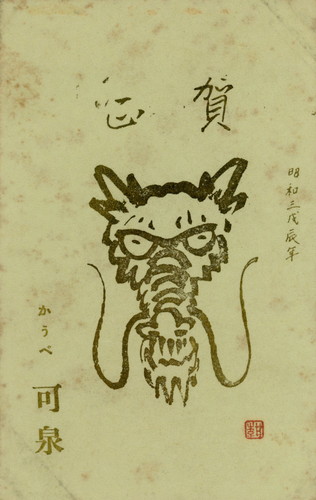 賀正
昭和三戊辰年
かうべ
可泉